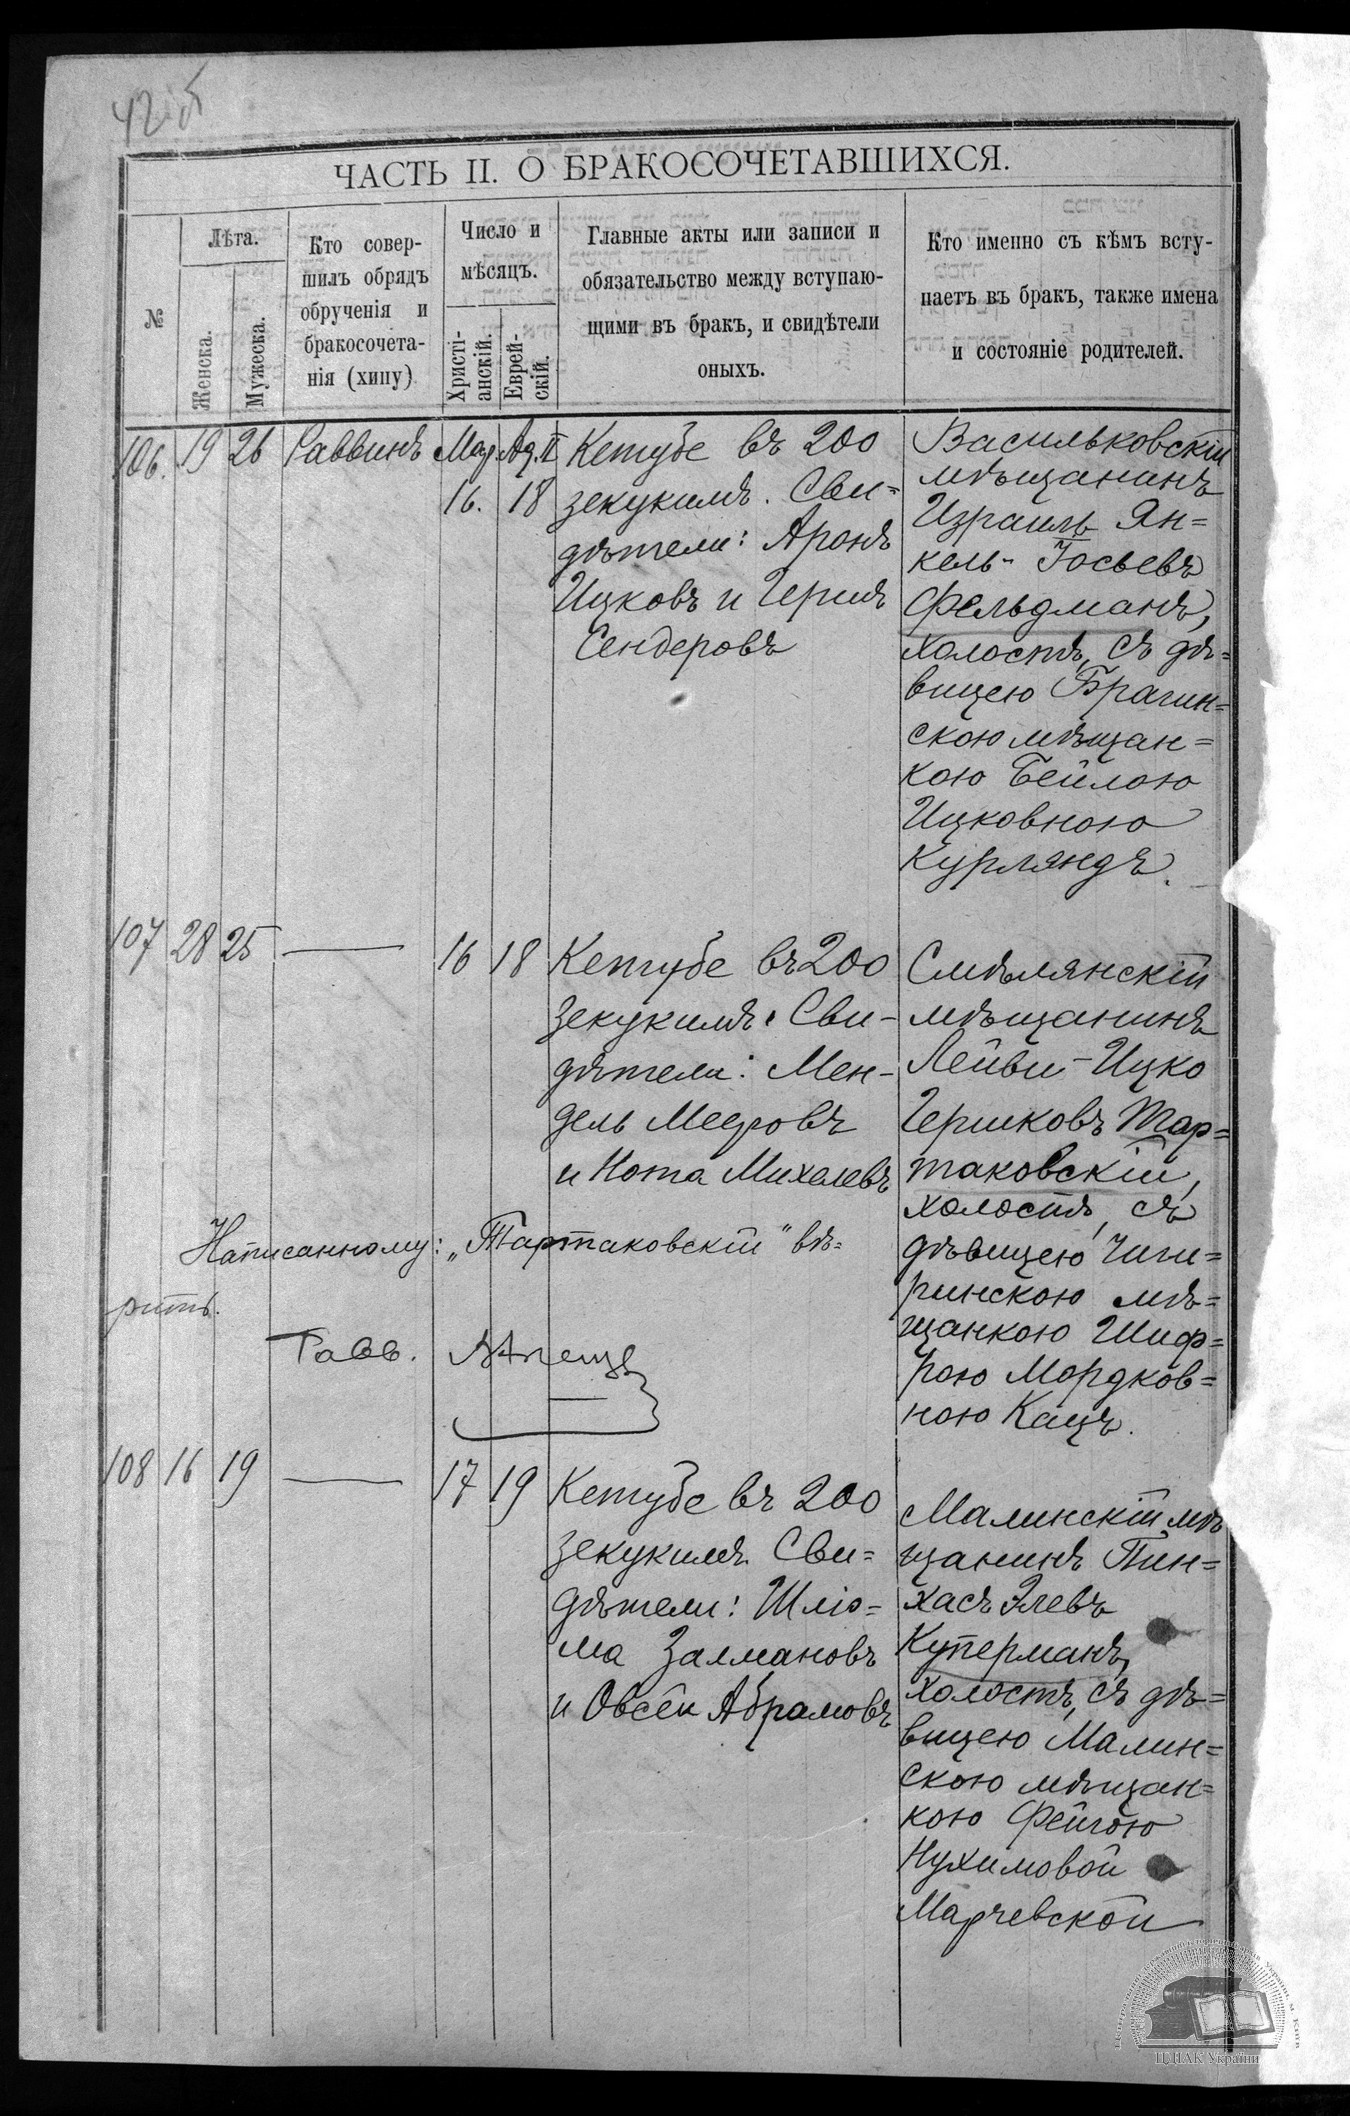 42об
ЧАСТЬ II. О БРАКОСОЧЕТАВШИХСЯ.
№
Лѣта.
Женска.
Мужеска.
Кто совер-
шилъ обрядъ
обрученія и
бракосочета-
нія (хипу)
Число и
мѣсяцъ.
Христі-
анскій.
Еврей-
скій.
Главные акты или записи и
обязательство между вступаю-
щими въ бракъ, и свидѣтели
оныхъ.
Кто именно съ кѣмъ всту-
паетъ въ бракъ, также имена
и состояніе родителей.
106. 19 26 Раввинъ Мар. Ад. II
16. 18
Кетубе въ 200
зекукимъ. Сви=
дѣтели: Аронъ
Ицковъ и Гершъ
Сендеровъ
Васильковскій
мѣщанинъ
Израиль Ян=
кель-Іосьевъ
Фельдманъ,
холостъ, съ дѣ=
вицею Брагин=
скою мѣщан=
кою Бейлою
Ицковною
Курляндъ.
107 28 25 — 16 18
Кетубе въ 200
зекукимъ. Сви-
дѣтели: Мен-
дель Мееровъ
и Нота Михелевъ
Смѣлянскій
мѣщанинъ
Лейви-Ицко
Гершковъ Тар=
таковскій,
холостъ, съ
дѣвицею Чиги=
ринскою мѣ=
щанкою Шиф=
рою Мордков=
ною Кацъ.
Написанному: „Тартаковскій" вѣ=
рить.
Равв.
108 16 19 — 17 19
Кетубе въ 200
зекукимъ. Сви=
дѣтели: Шлio=
ма Залмановъ
и Овсей Абрамовъ
Малинскій мѣ
щанинъ Пин=
хасъ Элевъ
Куперманъ,
холостъ, съ дѣ=
вицею Малин=
скою мѣщан=
кою Фейгою
Нухимовой
Марчевской
ЦДІАК України